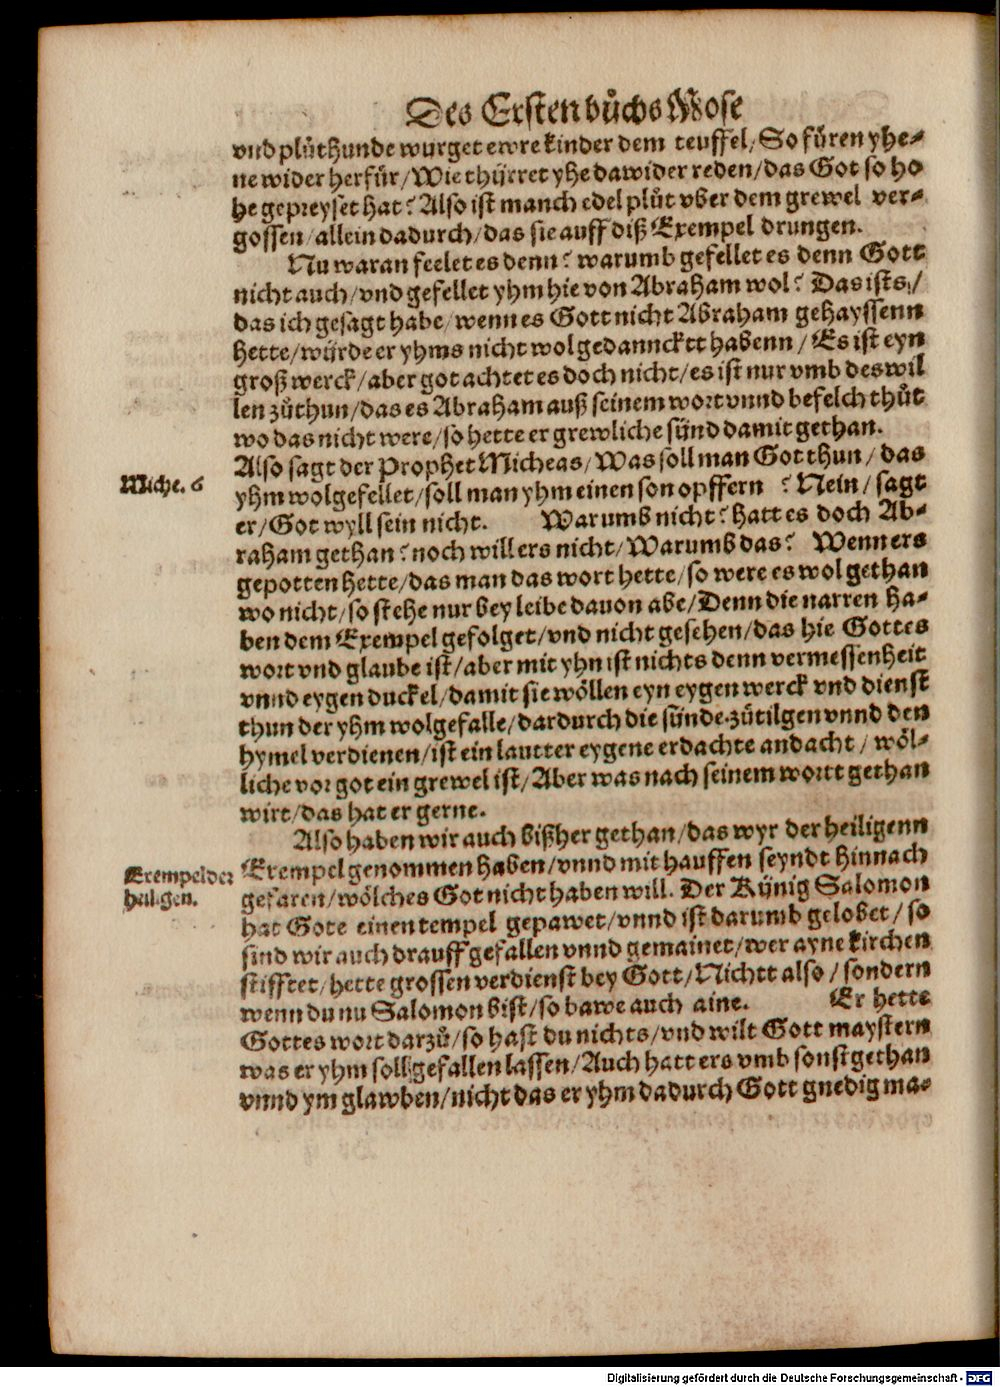 Des Ersten bůchs Mose
vnd plůthunde wurget ewre kinder dem teuffel/ So fůren yhe-
ne wider herfür/ Wie thürret yhe dawider reden/ das Got so ho
he gepreyset hat? Also ist manch edel plůt vber dem grewel ver-
gossen/ allein dadurch/ das sie auff diß Exempel drungen.
Nu waran feelet es denn? warumb gefellet es denn Gott
nicht auch/ vnd gefellet yhm hie von Abraham wol? Das ists/
das ich gesagt habe/ wenn es Gott nicht Abraham gehayssenn
hette/ würde er yhms nicht wol gedannckt habenn/ Es ist eyn
groß werck/ aber got achtet es doch nicht/ es ist nur vmb des wil
len zůthun/ das es Abraham auß seinem wort vnnd befelch thůt
wo das nicht were/ so hette er grewliche sünd damit gethan.
Also sagt der Prophet Micheas/ Was soll man Got thun/ das
Miche. 6
yhm wolgefellet/ soll man yhm einen son opffern ? Nein/ sagt
er/ Got wyll sein nicht. Warumb nicht? hatt es doch Ab-
raham gethan? noch will ers nicht/ Warumb das? Wenn ers
gepotten hette/ das man das wort hette/ so were es wol gethan
wo nicht/ so stehe nur bey leibe dauon abe/ Denn die narren ha-
ben dem Exempel gefolget/ vnd nicht gesehen/ das hie Gottes
wort vnd glaube ist/ aber mit yhn ist nichts denn vermessenheit
vnnd eygen duckel/ damit sie wöllen eyn eygen werck vnd dienst
thun der yhm wolgefalle/ dardurch die sünde zůtilgen vnnd den
hymel verdienen/ ist ein lautter eygene erdachte andacht/ wöl-
liche vor got ein grewel ist/ Aber was nach seinem wortt gethan
wirt/ das hat er gerne.
Also haben wir auch bißher gethan/ das wyr der heiligenn
Exempel der
heiligen.
Exempel genommen haben/ vnnd mit hauffen seyndt hinnach
gefaren/ wölches Got nicht haben will. Der Künig Salomon
hat Gote einen tempel gepawet/ vnnd ist darumb gelobet/ so
sind wir auch drauff gefallen vnnd gemainet/ wer ayne kirchen
stifftet/ hette grossen verdienst bey Gott/ Nichtt also/ sondern
wenn du nu Salomon bist/ so bawe auch aine. Er hette
Gottes wort darzů/ so hast du nichts/ vnd wilt Gott maystern
was er yhm soll gefallen lassen/ Auch hatt ers vmb sonst gethan
vnnd ym glawben/ nicht das er yhm dadurch Gott gnedig ma-
Digitalisierung gefördert durch die Deutsche Forschungsgemeinschaft - DFG